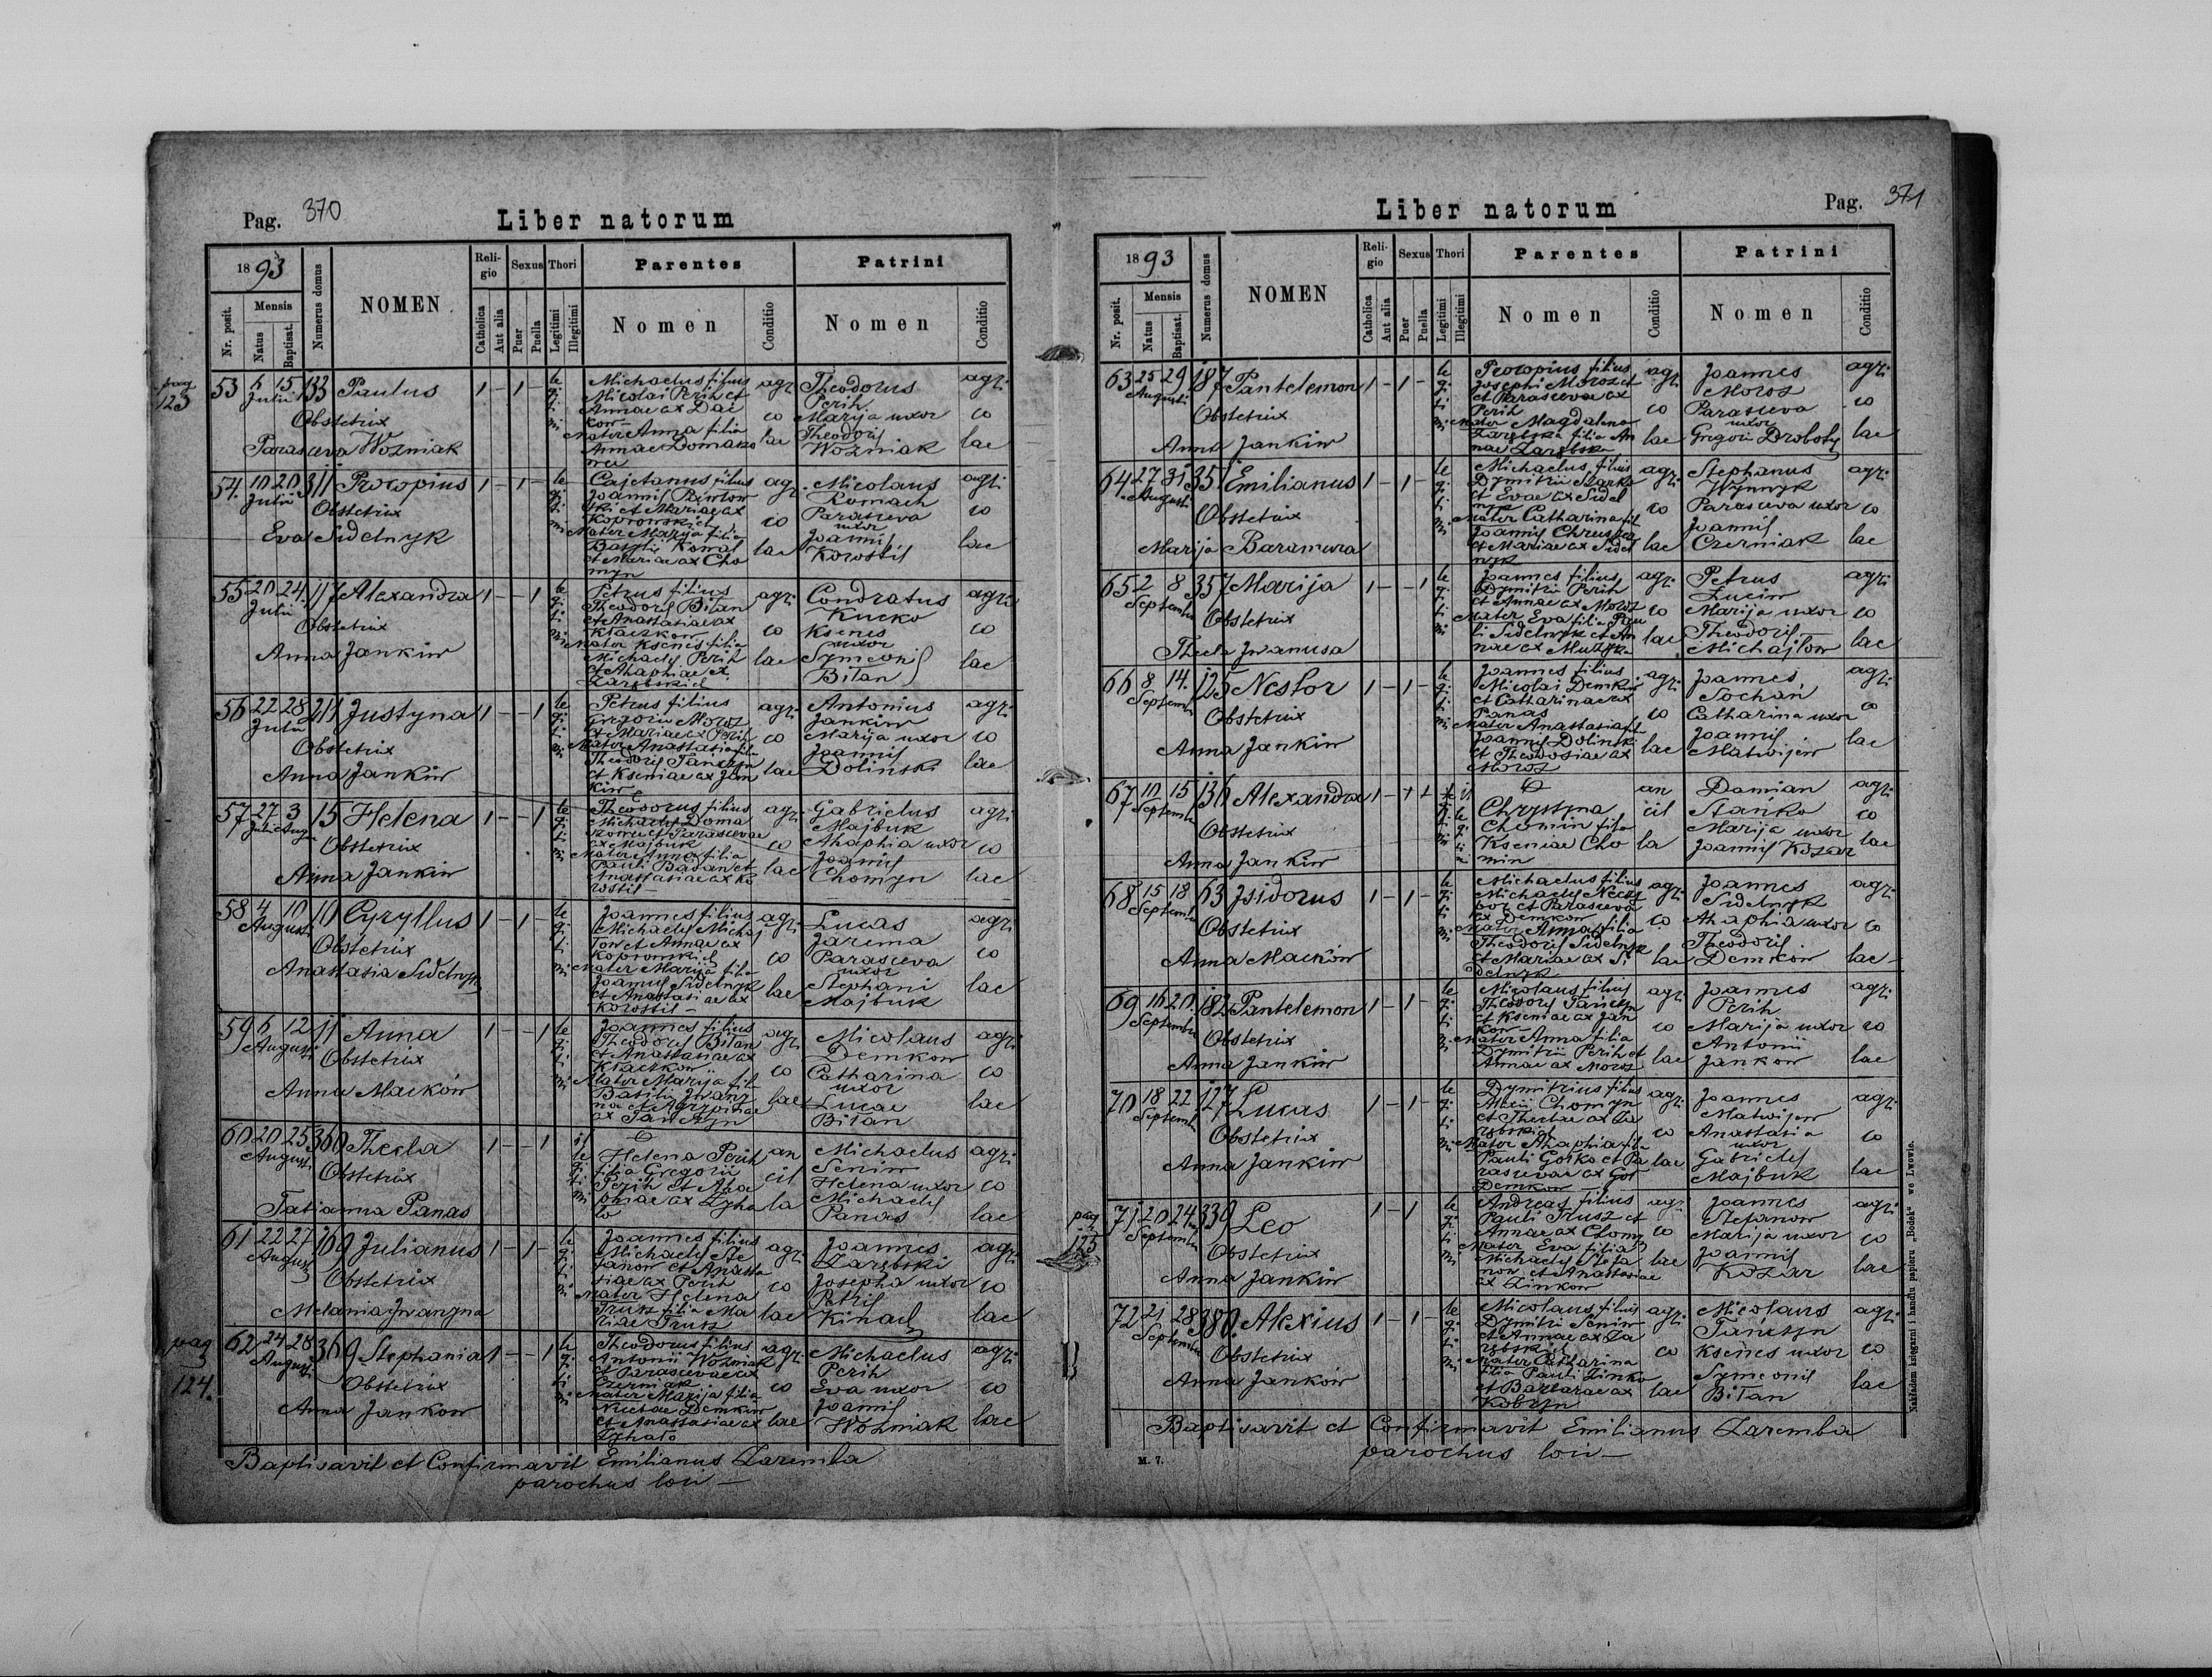 Pag. 370
Liber natorum
1893
Nr. posit.
Mensis
Natus
Baptisat.
Numerus domus
NOMEN
Religio
Catholica
Aut alia
Sexus
Puer
Puella
Thori
Legitimi
Illegitimi
Parentes
Nomen
Conditio
Patrini
Nomen
Conditio
pag 123
53 6 15 Julii 133 Paulus 1 - 1 -
Obstetrix
Parasceva Wozniak
legitimi
Michaelus filius
Nicolai Perih et
Annae ex Dac
kow -
Mater Anna filia
Annae Domans
agricolae
Theodorus
Perih
Marija uxor
Theodorij
Wozniak
agricolae
54. 10 20 Julii 311 Procopius 1 - 1 -
Obstetrix
Eva Sidelnyk
legitimi
Cajetanus filius
Joannis
et Mariae ex
Koprowskich
Mater Marija filia
Basylii Kowal
et Mariae ex Cho
myn
agricolae
Nicolaus
Romach
Parasceva
uxor
Joannis
Korostil
agricolae
55 20 24 Julii 117 Alexandra 1 - - 1
Obstetrix
Anna Jankiw
legitimi
Petrus filius
Theodorij Bilan
et Anastasiae ex
Klaczkow
Mater Ksenes filia
Michaely Perih
et Ahaphiae ex
Zarebskich
agricolae
Condratus
Kucko
Ksenes
uxor
Symeonij
Bilan
agricolae
56 22 28 Julii 211 Justyna 1 - - 1
Obstetrix
Anna Jankiw
legitimi
Petrus filius
Gregorii Moroz
et Mariae ex Perih
Mater Anastasia filia
Theodorij Tanczyn
et Kseniae ex Jan
kiw
agricolae
Antonius
Jankiw
Marija uxor
Joannis
Dolinski
agricolae
57 27 3 Julii Aug 15 Helena 1 - - 1
Obstetrix
Anna Jankiw
legitimi
Theodorus filius
Michaely Doma
et Parascevae
ex Majbuk
Mater Anna filia
Pauli Badan et
Anastasiae ex Ko
rostil -
agricolae
Gabrielus
Majbuk
Ahaphia uxor
Joannis
Chomyn
agricolae
58 4 10 Augusti 10 Cyryllus 1 - 1 -
Obstetrix
Anastasia Sidelnyk
legitimi
Joannes filius
Michaely Michaj
low et Annae ex
Koprowskich
Mater Marija filia
Joannis Sidelnyk
et Anastasiae ex
Korostil -
agricolae
Lucas
Jarema
Parasceva
uxor
Stephani
Majbuk
agricolae
59 6 12 Augusti 11 Anna 1 - - 1
Obstetrix
Anna Mackow
legitimi
Joannes filius
Theodorij Bilan
et Anastasiae ex
Klaczkow
Mater Marija filia
Basilii Iwany
na et
ex Tanczyn
agricolae
Nicolaus
Demkow
Catharina
uxor
Lucae
Bilan
agricolae
60 20 25 Augusti 360 Thecla 1 - - 1
Obstetrix
Tatianna Panas
illegitimi
Helena Perih
filia Gregorii
Perih et Aha
phiae ex Zyha
lo
ancilla
Michaelus
Seniw
Helena uxor
Michaely
Panas
agricolae
61 22 27 Augusti 169 Julianus 1 - 1 -
Obstetrix
Melania Iwanyna
legitimi
Joannes filius
Michaely Ste
fanow et Anasta
siae ex Perih
Mater Helena
Trusz filia Ma
riae Trusz
agricolae
Joannes
Zarebski
Josepha uxor
Petri
Kinach
agricolae
pag 124.
62 24 28 Augusti 369 Stephania 1 - - 1
Obstetrix
Anna Jankow
legitimi
Theodorus filius
Antonii Wozniak
et Parascevae ex
Czerniak
Mater Marija filia
Nicetae Demkiw
et Anastasiae ex
Zyhalo
agricolae
Michaelus
Perih
Eva uxor
Joannis
Wozniak
agricolae
Baptisavit et Confirmavit Emilianus Zaremba
parochus loci -
Pag. 371
Liber natorum
1893
Nr. posit.
Mensis
Natus
Baptisat.
Numerus domus
NOMEN
Religio
Catholica
Aut alia
Sexus
Puer
Puella
Thori
Legitimi
Illegitimi
Parentes
Nomen
Conditio
Patrini
Nomen
Conditio
63 25 29 Augusti 187 Pantelemon 1 - 1 -
Obstetrix
Anna Jankiw
legitimi
Procopius filius
Josephi Moroz et
et Parascevae ex
Perih
Mater Magdalena
Zarebska filia An
nae Zarebska
agricolae
Joannes
Moroz
Parasceva
uxor
Gregorii Droboty
agricolae
64 27 31 Augusti 351 Emilianus 1 - 1 -
Obstetrix
Marija Baramura
legitimi
Michaelus filius
Dymitrii Stanko
et Evae ex Sidel
nyk
Mater Catharina fil
Joannis
et Mariae ex Sidel
nyk
agricolae
Stephanus
Wynnyk
Parasceva uxor
Joannis
Czerniak
agricolae
65 2 8 Septembr 357 Marija 1 - - 1
Obstetrix
Thecla Iwanusa
legitimi
Joannes filius
Dymitrii Perih
et Annae ex Moroz
Mater Eva filia Pau
li Sidelnyk et An
nae ex Muzyka
agricolae
Petrus
Luciw
Marija uxor
Theodorij
Michajlow
agricolae
66 8 14. Septembr 125 Nestor 1 - 1 -
Obstetrix
Anna Jankiw
legitimi
Joannes filius
Nicolai Demkiw
et Catharinae ex
Panas
Mater Anastasia fil
Joannis Dolinski
et Theodosiae ex
Moroz
agricolae
Joannes
Sochan
Catharina uxor
Joannis
Matwijew
agricolae
67 10 15 Septembr 136 Alexandra 1 - 1
Obstetrix
Anna Jankiw
illegitimi
Chrystyna
Chomin filia
Kseniae Cho
min
ancilla
Damian
Stanko
Marija uxor
Joannis Kozar
agricolae
68 15 18 Septembr 63 Isidorus 1 - 1 -
Obstetrix
Anna Mackow
legitimi
Michaelus filius
Michaely Neczy
por et Parasceva
ex Demkow
Mater Anna filia
Theodorij Sidelnyk
et Mariae ex Si
delnyk
agricolae
Joannes
Sidelnyk
Ahaphia uxor
Theodorij
Demkow
agricolae
69 16 20 Septembr 182 Pantelemon 1 - 1 -
Obstetrix
Anna Jankiw
legitimi
Nicolaus filius
Theodorij Tanczyn
et Kseniae ex Jan
kow -
Mater Anna filia
Dymitrii Perih et
Annae ex Moroz
agricolae
Joannes
Perih
Marija uxor
Antonii
Jankow
agricolae
70 18 22 Septembr 127 Lucas 1 - 1 -
Obstetrix
Anna Jankiw
legitimi
Dymitrius filius
Alexii Chomyn
et Theclae ex Za
rebskich
Mater Ahaphia filia
Pauli Gorko et Pa
rascevae ex Gor
Demkow
agricolae
Joannes
Matwijow
Anastasia
uxor
Gabriely
Majbuk
agricolae
pag 125
71 20 24 Septembr 339 Leo 1 - 1
Obstetrix
Anna Jankiw
legitimi
Andreas filius
Pauli Trusz et
Annae ex Chomy
Mater Eva filia
Michaely Stefa
now et Anastasiae
ex Zinkow
agricolae
Joannes
Stefanow
Marija uxor
Joannis
Kozar
agricolae
72 21 28 Septembr 380. Alexius 1 - 1 -
Obstetrix
Anna Jankow
legitimi
Nicolaus filius
Dymitri Seniw
et Annae ex Za
rebskich
Mater Catharina
filia Pauli Zinko
et Barbarae ex
Kobryn
agricolae
Nicolaus
Tanczyn
Ksenes uxor
Symeonij
Bilan
agricolae
Baptisavit et Confirmavit Emilianus Zaremba
parochus loci -
M. 7.
Nakładem księgarni i handlu papieru „Bodek" we Lwowie.